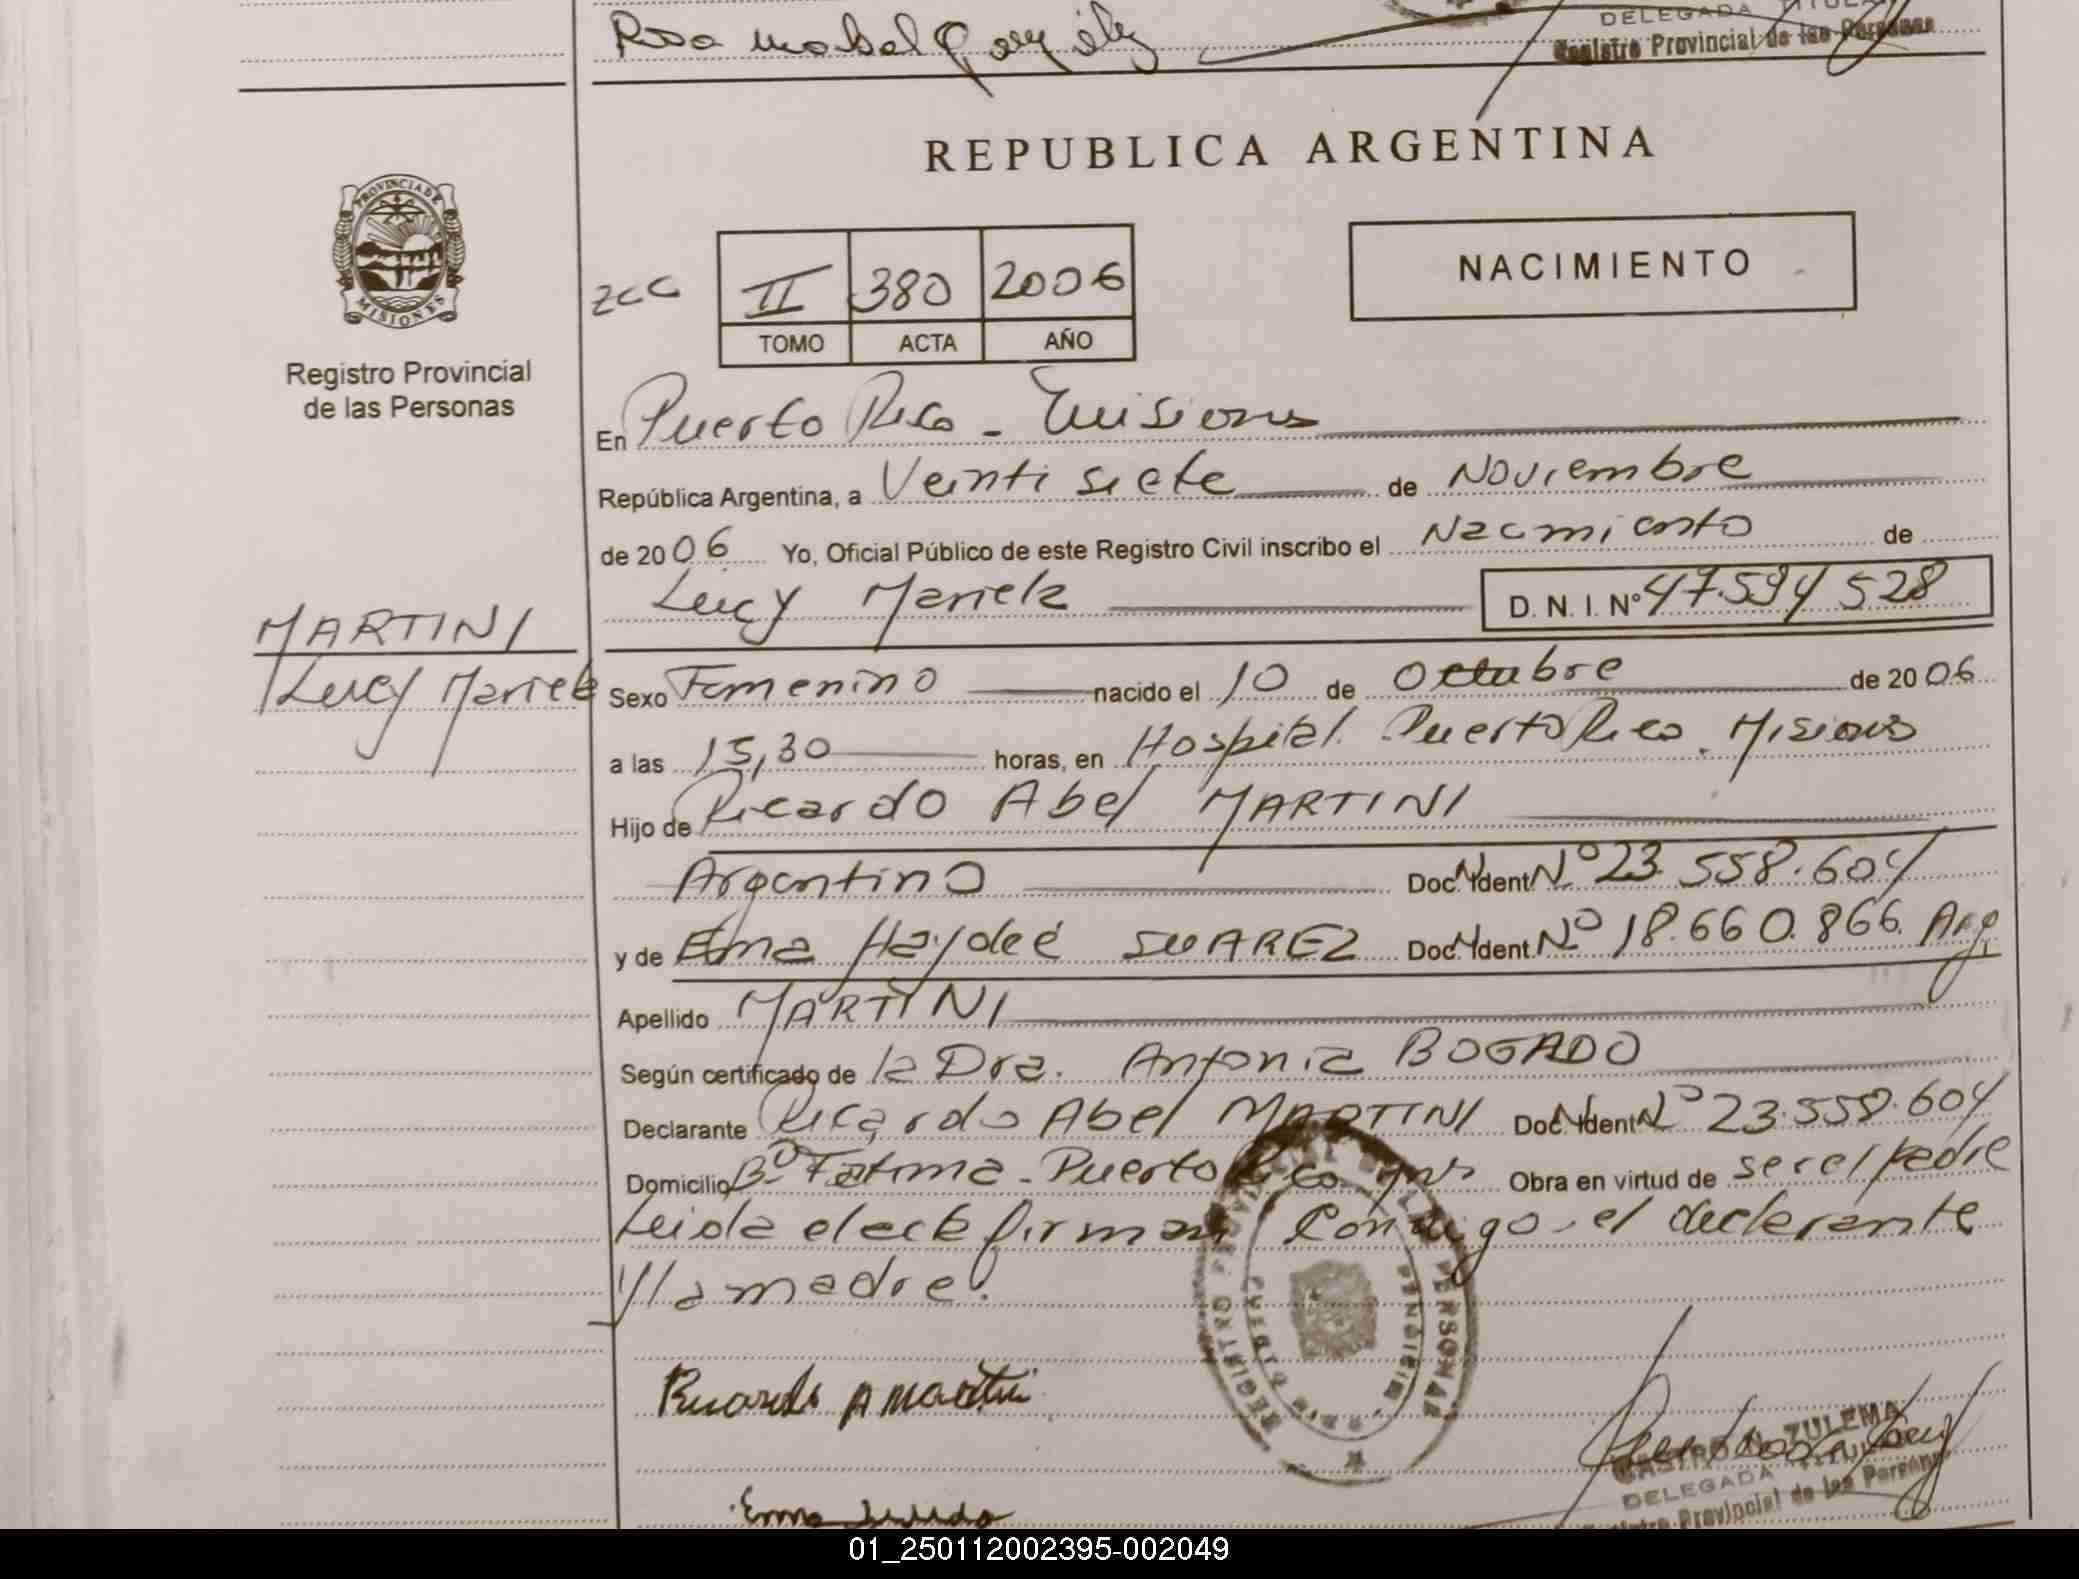 Rosa Mabel
DELEGADA TITULAR
Registro Provincial de las Personas
REPUBLICA ARGENTINA
PROVINCIA DE
MISIONES
Registro Provincial
de las Personas
zcc
II 380 2006
TOMO ACTA AÑO
NACIMIENTO
En Puerto Rico - Misiones
República Argentina, a Veintisiete de Noviembre
de 2006 Yo, Oficial Público de este Registro Civil inscribo el Nacimiento de
Lucy Mariela D. N. I. Nº 47.594 528
MARTINI
Lucy Mariela
Sexo Femenino nacido el 10 de Octubre de 2006
a las 15,30 horas, en Hospital Puerto Rico. Misiones
Hijo de Ricardo Abel MARTINI
Argentino Doc. Ident Nº 23.558.604
y de Ema Haydeé SUAREZ Doc. Ident. Nº 18.660.866. Arg
Apellido MARTINI
Según certificado de la Dra. Antonia BOGADO
Declarante Ricardo Abel MARTINI Doc. Ident Nº 23.558.604
Domicilio Bº Fatima - Puerto Rico Mns Obra en virtud de ser el padre
Leida el acta firman Conmigo el declarante
y la madre.
Ricardo A Martini
CASTRO N. ZULEMA
DELEGADA TITULAR
Registro Provincial de las Personas
Ema
01_250112002395-002049